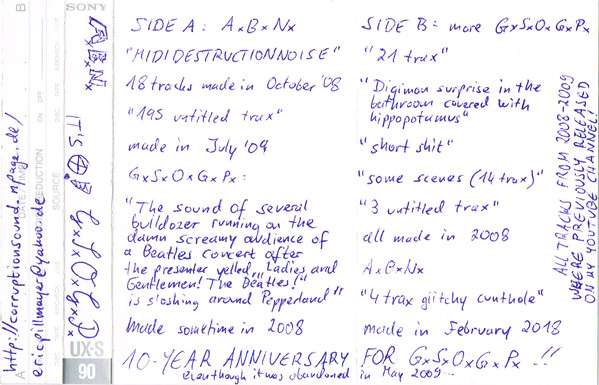 B
http://corruptionsound.npage.de/
ericpillmayer@yahoo.de
A
DATE
NOISE REDUCTION
ON
OFF
SOURCE
SONY
AxBxNx
IT'S
GxSxOxGxPx
UX-S
90
SIDE A: AxBxNx
"MIDIDESTRUCTIONNOISE"
18 tracks made in October '08
"195 untitled trax"
made in July '09
GxSxOxGxPx:
"The sound of several
bulldozer running on the
damn screamy audience of
a Beatles concert after
the presenter yelled "Ladies and
Gentlemen! The Beatles!"
is sloshing around Pepperland"
Made sometime in 2008
SIDE B: more GxSxOxGxPx
"21 trax"
"Digimon surprise in the
bathroom covered with
hippopotamus"
"short shit"
"some scenes (14 trax)"
"3 untitled trax"
all made in 2008
AxBxNx
"4 trax glitchy cunthole"
made in February 2018
10-YEAR ANNIVERSARY FOR GxSxOxGxPx !!
eventhough it was abandoned in May 2009...
ALL TRACKS FROM 2008-2009
WHERE PREVIOUSLY RELEASED
ON MY YOUTUBE CHANNEL!